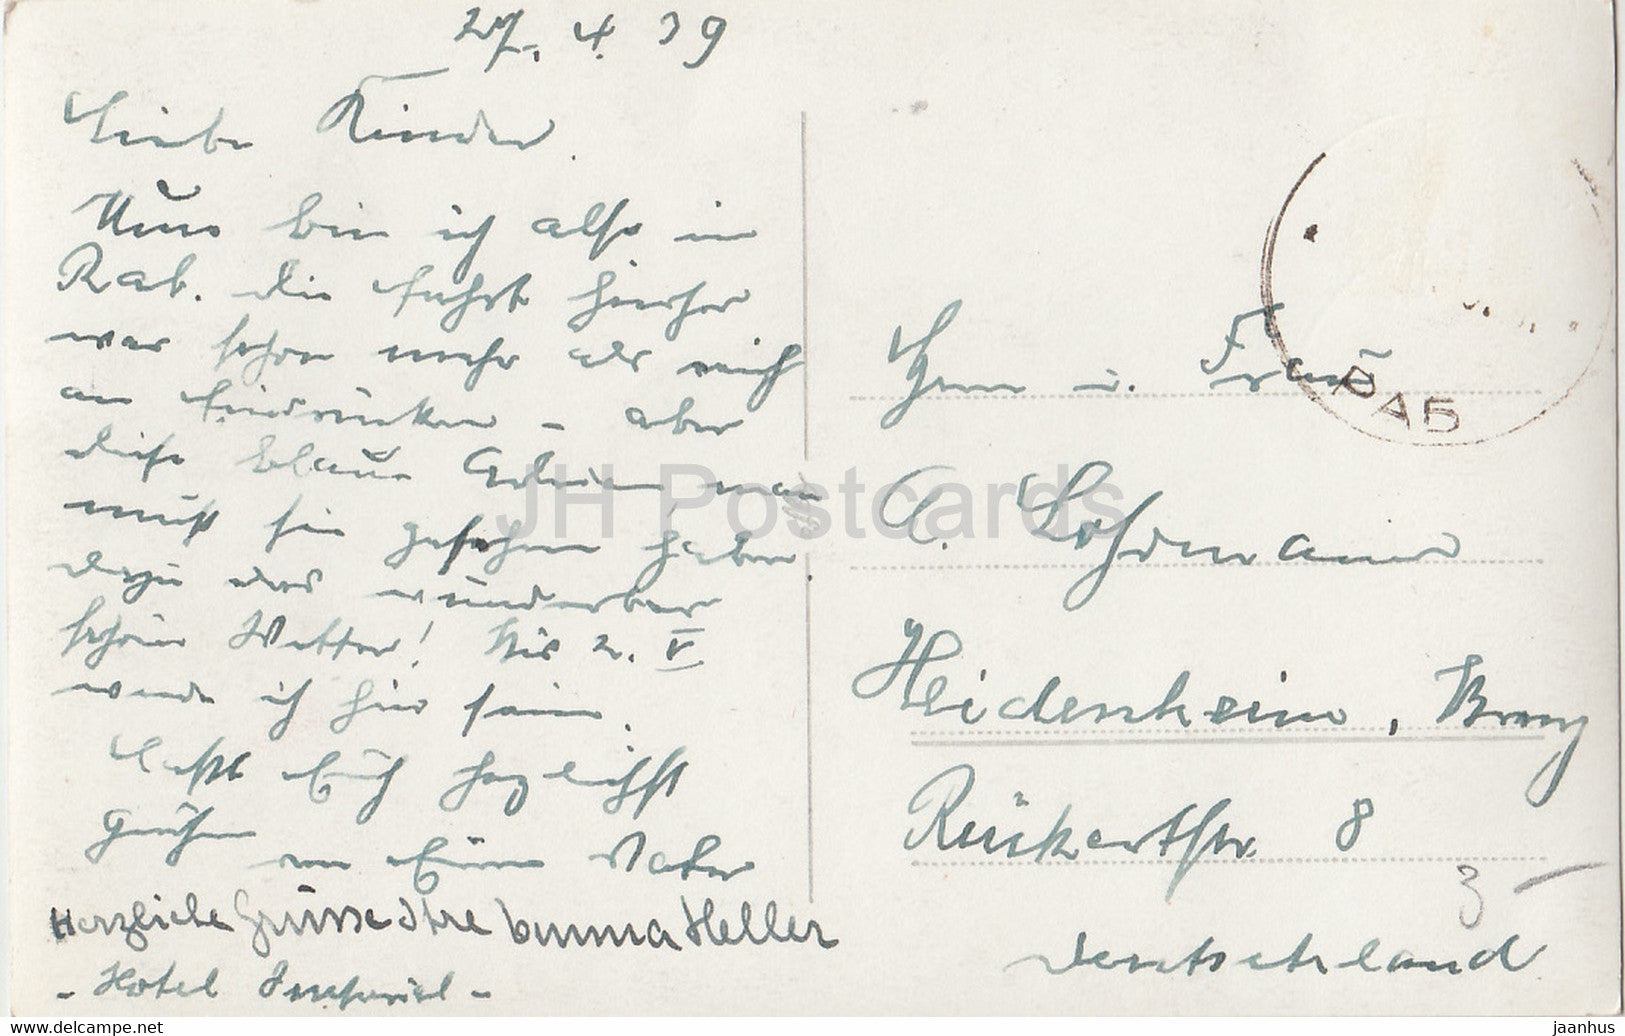 27. 4. 39
Liebe Kinder.
Nun bin ich also in
Rab. Die Fahrt hierher
war schon mehr als reich
an Eindrücken – aber
diese blaue Adria, man
muß sie gesehen haben
dazu das wunderbar
schöne Wetter! Bis 2. V.
werde ich hier sein.
Laßt Euch herzlichst
grüßen
von Eurem Vater
Herzliche Grüsse Ihre Emma Heller
- Hotel Imperial -
Herrn u. Frau
Lohrmann
Heidenheim, Brenz
Rückertstr. 8
Deutschland
3
РАБ
JH Postcards
www.delcampe.net
jaanhus